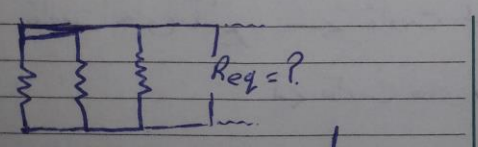 Req = ?